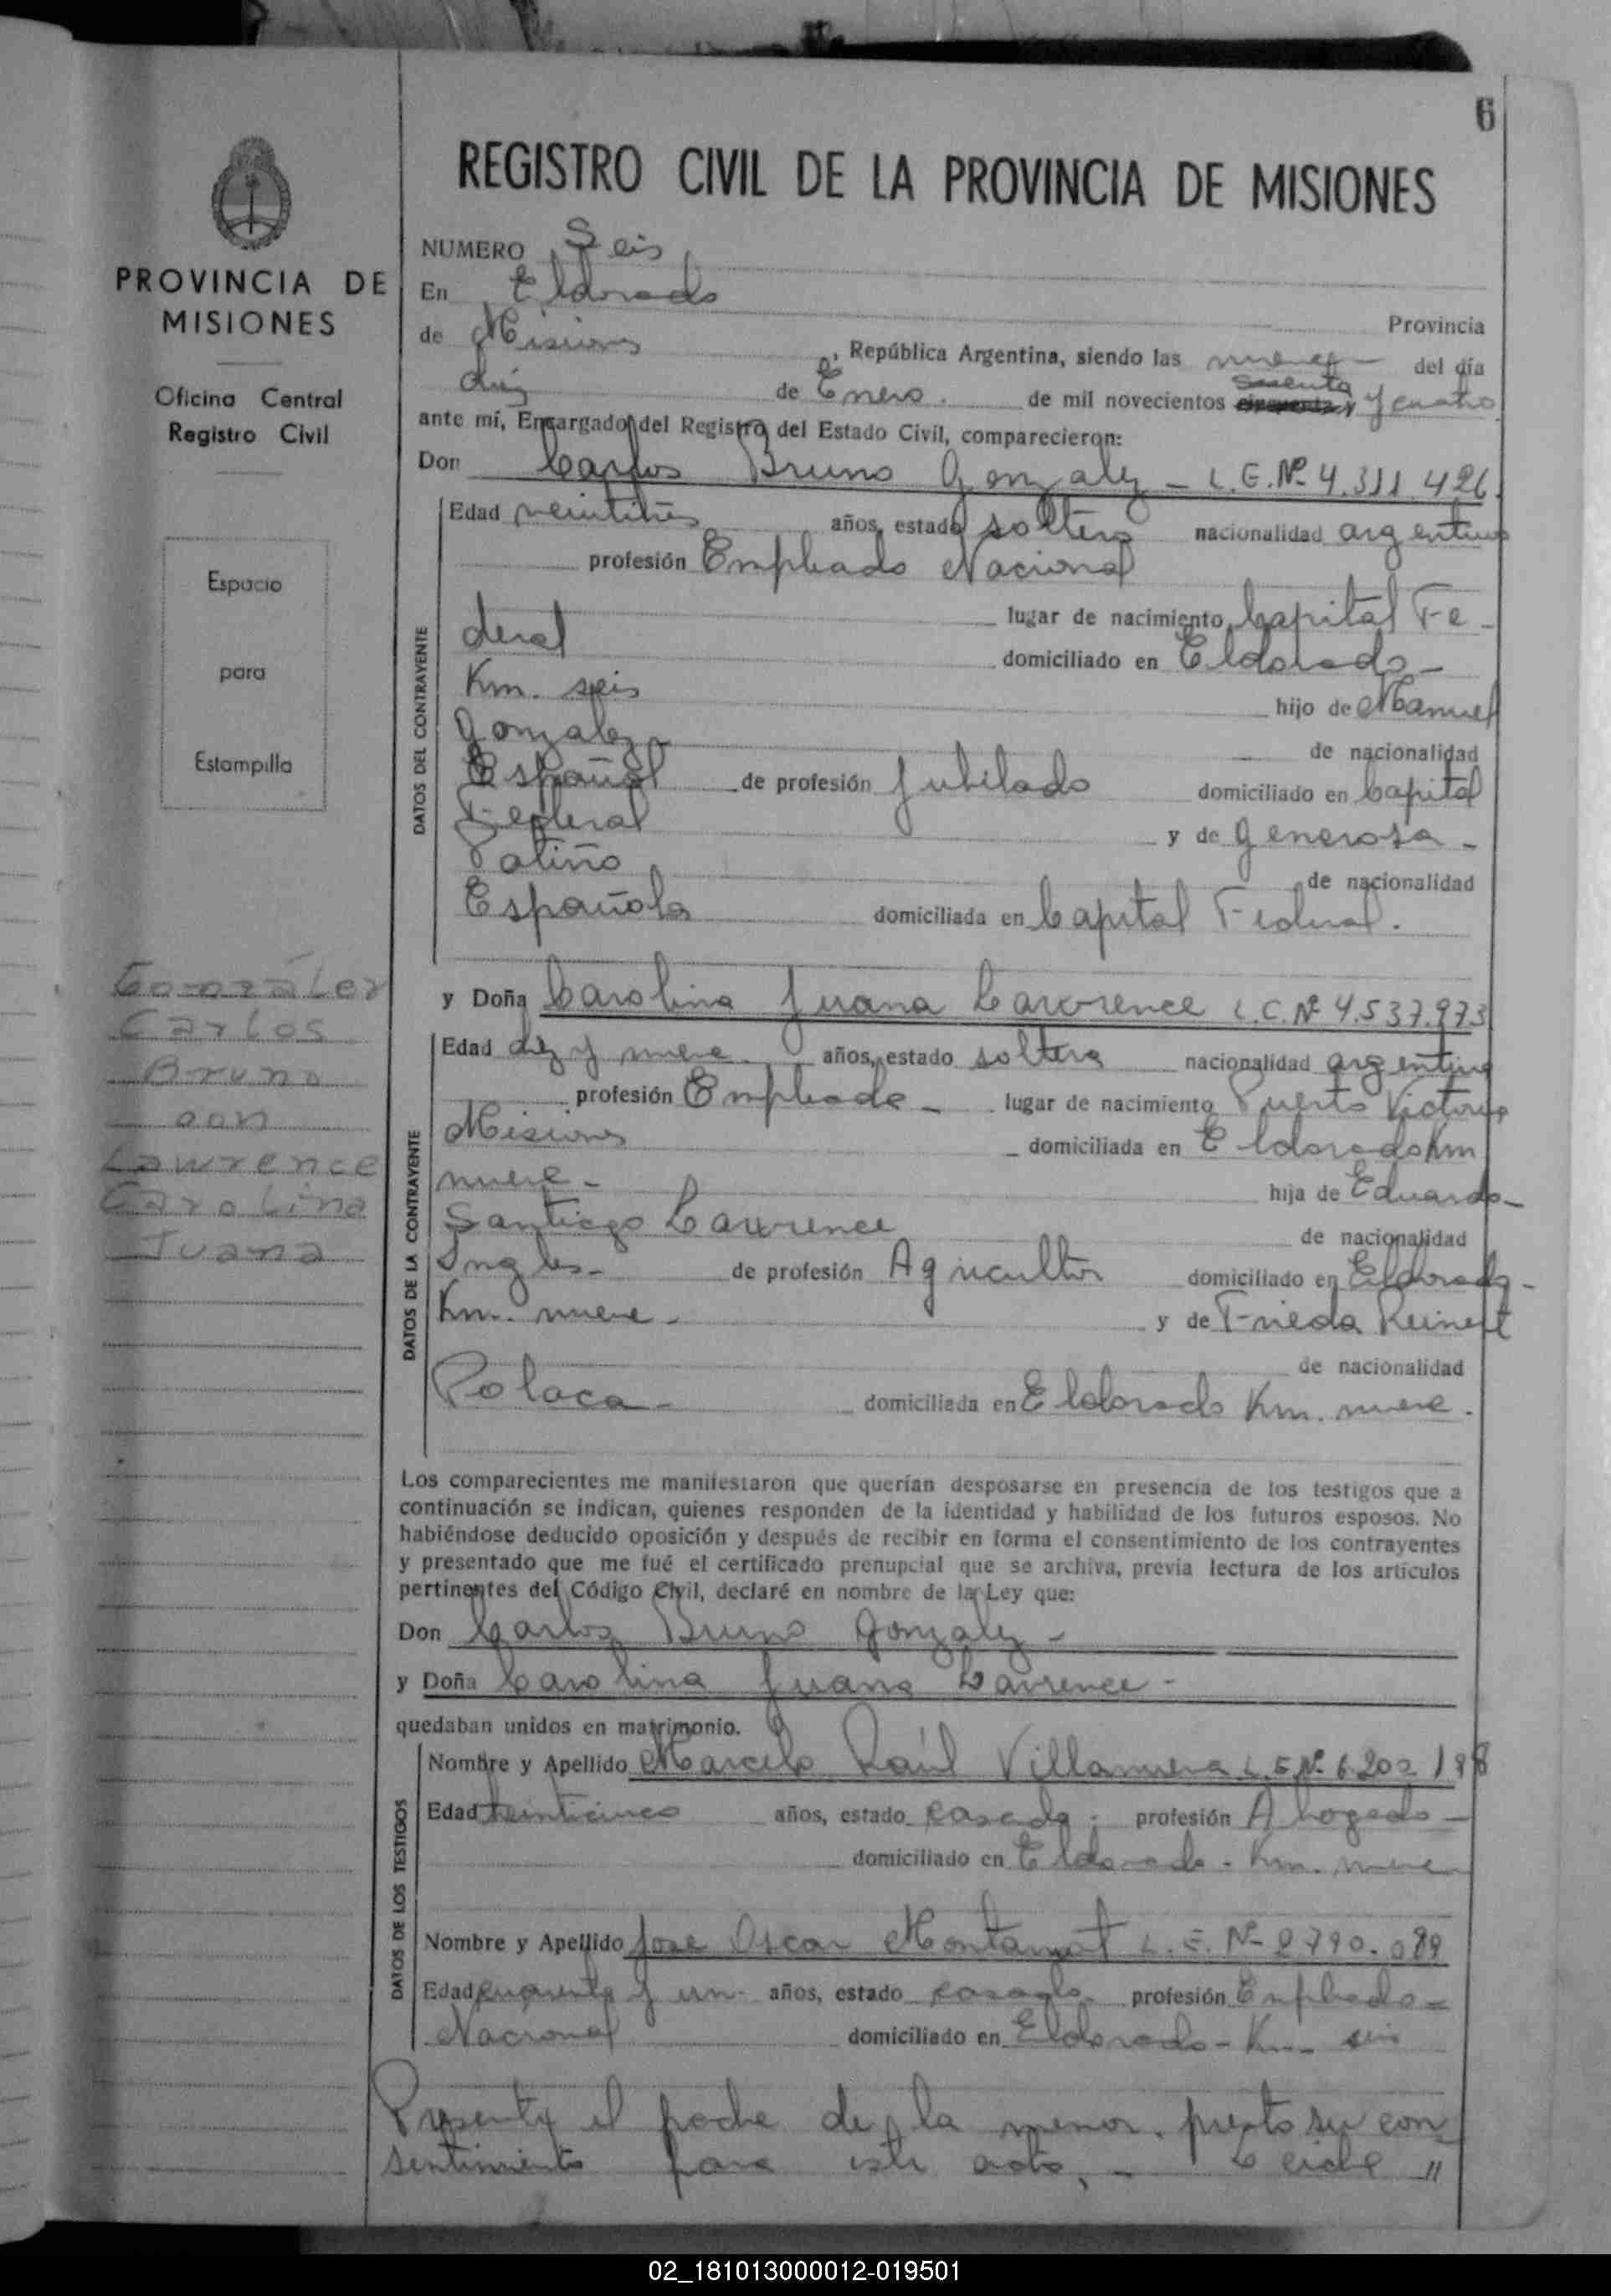 6
REGISTRO CIVIL DE LA PROVINCIA DE MISIONES
PROVINCIA DE
MISIONES
Oficina Central
Registro Civil
Espacio
para
Estampilla
González
Carlos
Bruno
con
Lawrence
Carolina
Juana
NUMERO Seis
En Eldorado
Provincia
de Misiones, República Argentina, siendo las nueve del día
diez de Enero. de mil novecientos sesenta y cuatro
ante mí, Encargado del Registro del Estado Civil, comparecieron:
Don Carlos Bruno Gonzalez - L.E. Nº 4.311.426.
DATOS DEL CONTRAYENTE
Edad veintitrés años, estado soltero nacionalidad argentino
profesión Empleado Nacional
lugar de nacimiento Capital Fe-
deral domiciliado en Eldorado-
Km. seis hijo de Manuel
Gonzalez- de nacionalidad
Español de profesión Jubilado domiciliado en Capital
Federal y de Generosa -
Patiño de nacionalidad
Española domiciliada en Capital Federal.
y Doña Carolina Juana Lawrence L.C. Nº 4.537.973
DATOS DE LA CONTRAYENTE
Edad diez y nueve años, estado soltera nacionalidad argentina
profesión Empleada - lugar de nacimiento Puerto Victoria
Misiones domiciliada en Eldorado Km
nueve - hija de Eduardo-
Santiago Lawrence de nacionalidad
Ingles- de profesión Agricultor domiciliado en Eldorado-
Km. nueve. y de Frieda Reinelt
de nacionalidad
Polaca- domiciliada en Eldorado Km. nueve.
Los comparecientes me manifestaron que querían desposarse en presencia de los testigos que a
continuación se indican, quienes responden de la identidad y habilidad de los futuros esposos. No
habiéndose deducido oposición y después de recibir en forma el consentimiento de los contrayentes
y presentado que me fué el certificado prenupcial que se archiva, previa lectura de los artículos
pertinentes del Código Civil, declaré en nombre de la Ley que:
Don Carlos Bruno Gonzalez -
y Doña Carolina Juana Lawrence -
quedaban unidos en matrimonio.
DATOS DE LOS TESTIGOS
Nombre y Apellido Marcelo Raúl Villanueva L.E. Nº 6.202.188
Edad años, estado casado. profesión Abogado-
domiciliado en Eldorado - Km. nueve
Nombre y Apellido Jose Oscar Montamat L.E. Nº 2790.089
Edad cuarenta y un años, estado casado. profesión Empleado-
Nacional domiciliado en Eldorado- Km- seis
Presente el padre de la menor, presto su con
sentimiento para este acto. -
02_181013000012-019501